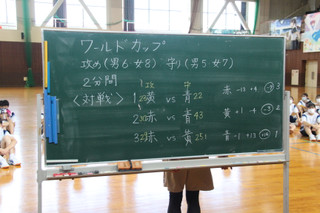 ワールドカップ
攻め(男6女8) 守り(男5女7)
2分間
<対戦> 攻 守
1. 黄 vs 青 22
2. 赤 vs 青
3. 赤 vs 黄
赤 -13 +4 3
黄 +1 -4 2
青 -1 +13 1